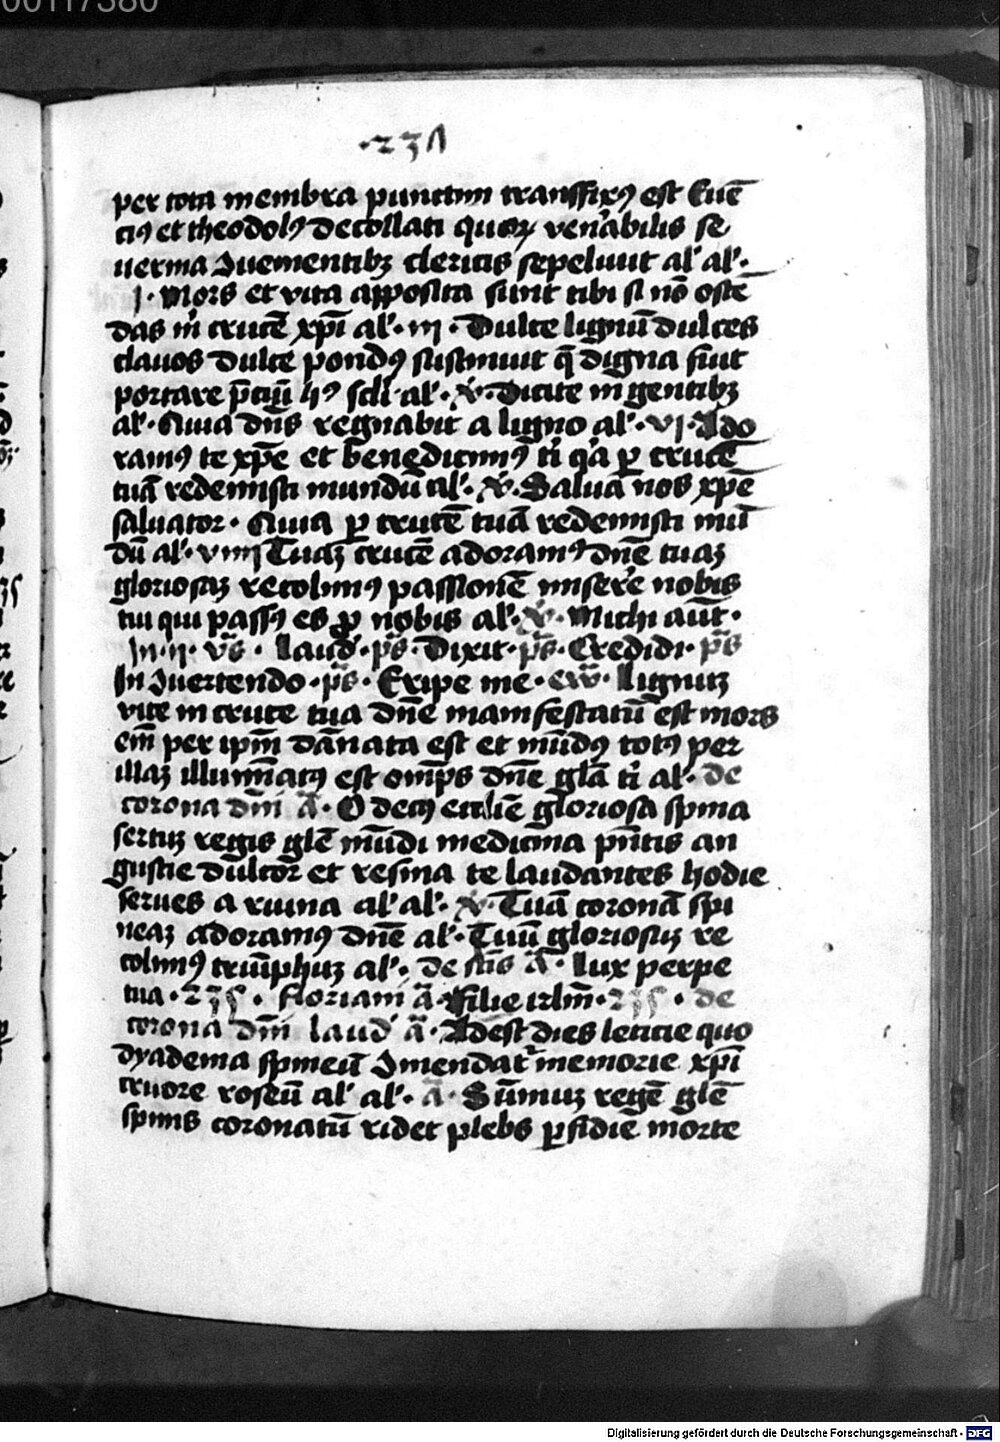 00117380
·237
per tota membra punctim transfixꝰ est Euē
tiꝰ et theodolꝰ decollati quoꝝ ven͛abilis se
uerina Iuementibꝫ clericis sepeliuit al͛ al͛·
j· Mors et vita apposita sunt tibi si nō oste
das m͛ crucē xp̄i al͛· iij · Dulce lignū dulces
clauos dulce pondꝰ sustinuit q̄ digna fuit
portare p̄ciū hꝰ scl̄i al͛· v͛· Dicite in gentibꝫ
al͛· Quia dn̄s regnabit a ligno al͛· vj· Ado
ramꝰ te xp̄e et benedicimꝰ ti͛ qa͛ ꝑ crucē
tuā redemisti mundū al͛· v͛· Salua nos xp̄e
saluator· Quia ꝑ crucē tuā redemisti mū
dū al͛· viiij Tuaꝫ crucē adoramꝰ dn̄e tuaꝫ
gloriosaꝫ recolimꝰ passionē miserere nobis
tui qui passꝰ es ꝓ nobis al͛· v͛· Michi aūt·
In· ij· vs̄· laud͛· ps̄· Dixit· ps̄· Credidi· ps̄
In Iuertendo· ps̄· Eripe me· ew̄· lignuꝫ
vite in cruce tua dn̄e manifestatū est mors
em̄ per ip̄m dān̄ata est et mūdꝰ totꝰ per
illaꝫ illumīatꝰ est om̄ps dn̄e gl̄a ti͛ al͛· de
corona dn̄i ā· O decꝰ eccl̄ie gloriosa spina
sertuꝫ regis gl̄e mūdi medicina pn̄tis an
gustie dulcor et resina te laudantes hodie
serues a ruina al͛ al͛· v͛· Tuā coronā spi
neaꝫ adoramꝰ dn̄e al͛· Tuū gloriosuꝫ re
colimꝰ triūphuꝫ al͛· de sc̄is ā· lux perpe
tua· 235 · floriani ā filie irlm̄· 235 · de
corona dn̄i laud͛ ā· Adest dies leticie quo
dyadema spineū Imendat͛ memorie xp̄i
cruore roseū al͛ al͛· ā· Sūmuꝫ regē gl̄e
spinis coronatū ridet plebs ꝑfidie morte
Digitalisierung gefördert durch die Deutsche Forschungsgemeinschaft - DFG